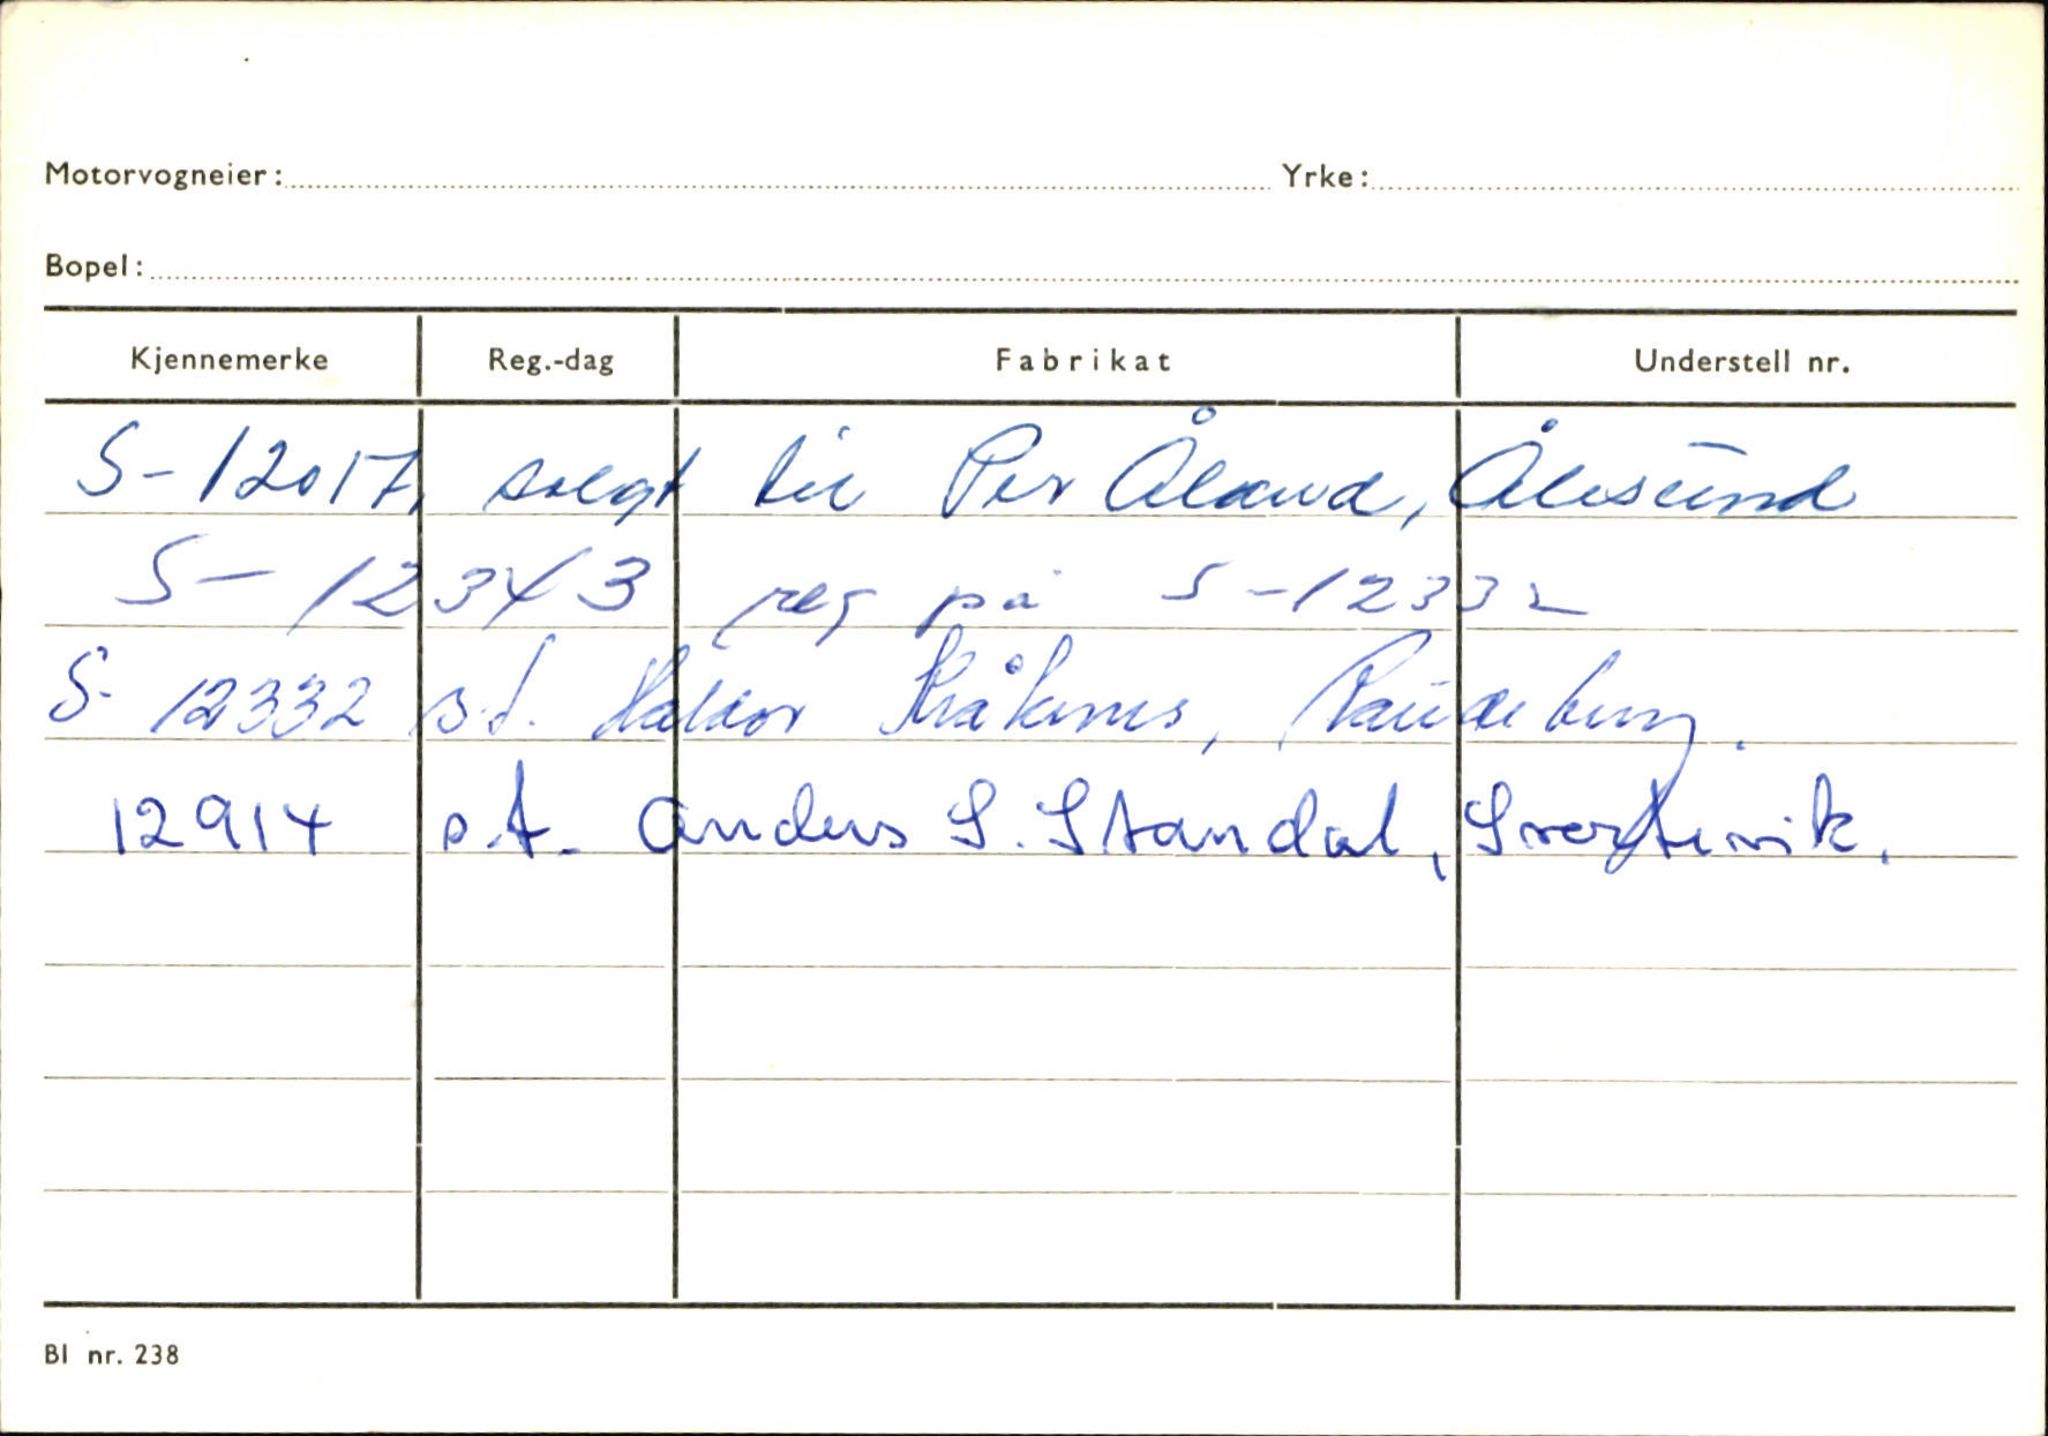 Motorvogneier: Yrke:
Bopel:
Kjennemerke Reg.-dag Fabrikat Understell nr.
S-12017, solgt til Per Åland, Ålesund
S-12343 reg på S-12332
S-12332 s.t. Halldor Kråkenes, Raudeberg.
12914 s.t. Anders S. Standal, Svartevik.
Bl nr. 238